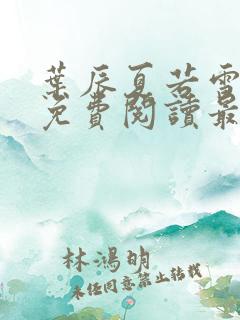 葉辰夏若雪
免費閱讀最
林鴻明
未經同意禁止轉載